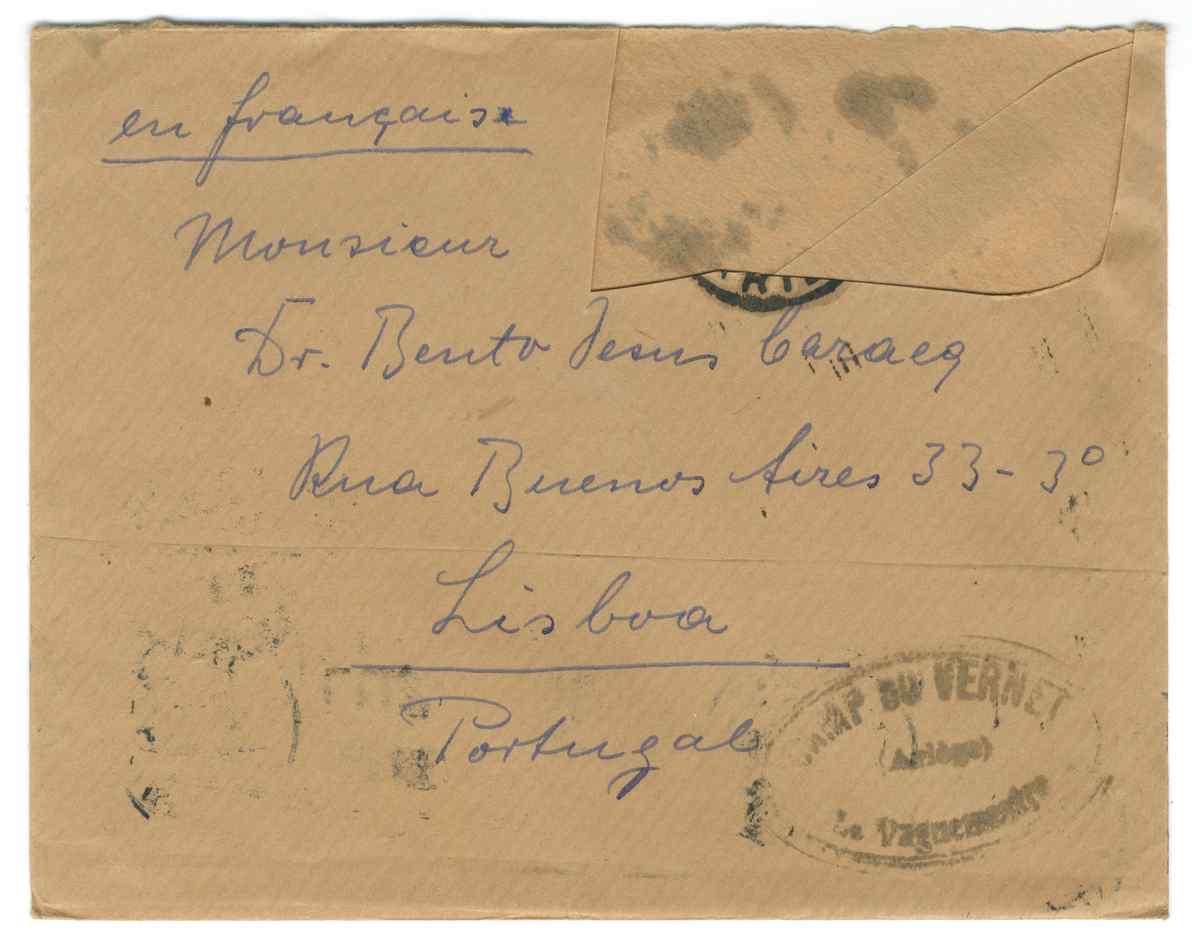 en français
Monsieur
Dr. Bento Jesus Caraça
Rua Buenos Aires 33-3º
Lisboa
Portugal
CAMP DU VERNET
(Ariège)
Le Vaguemestre